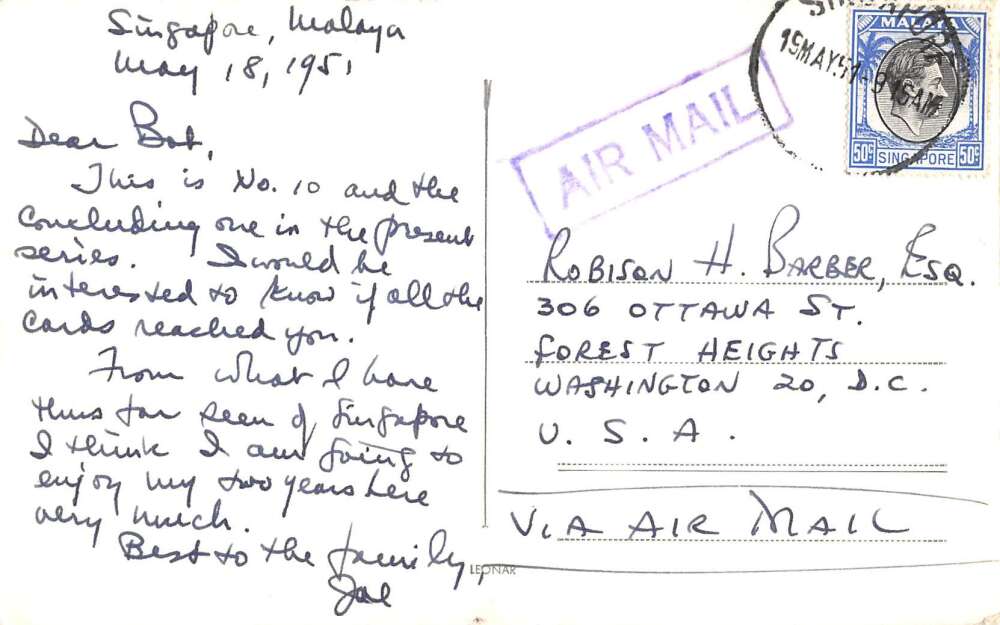 Singapore, Malaya
May 18, 1951
Dear Bob,
This is No. 10 and the
concluding one in the present
series. I would be
interested to know if all the
cards reached you.
From what I have
thus far seen of Singapore
I think I am going to
enjoy my two years here
very much.
Best to the family,
Joe
LEONAR
AIR MAIL
SINGAPORE
19MAY51-915AM
MALAYA
50c SINGAPORE 50c
ROBISON H. BARBER, ESQ.
306 OTTAWA ST.
FOREST HEIGHTS
WASHINGTON 20, D.C.
U. S. A.
VIA AIR MAIL